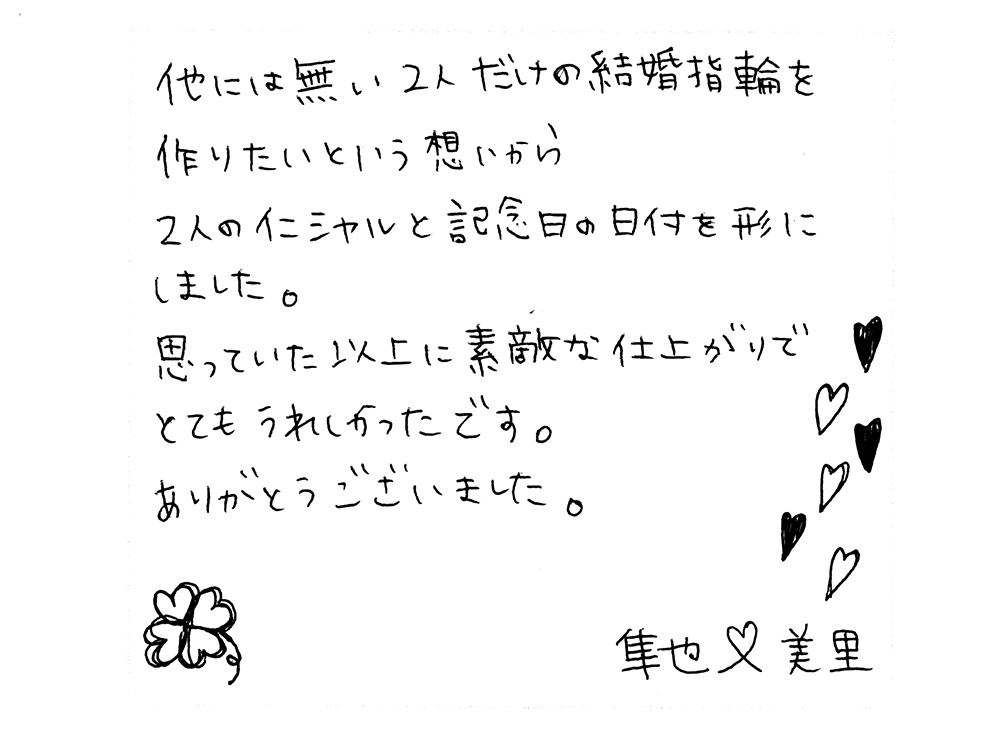 他には無い2人だけの結婚指輪を
作りたいという想いから
2人のイニシャルと記念日の日付を形に
しました。
思っていた以上に素敵な仕上がりで
とてもうれしかったです。
ありがとうございました。
隼也♡美里